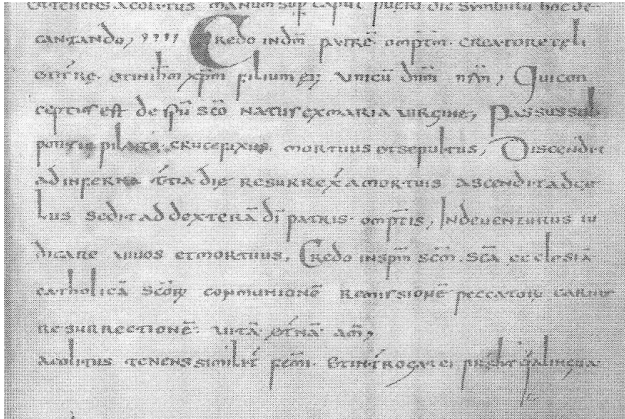 et tenens acolitus manum sup caput pueri dic symbulu hoc de
cantando, Credo in dm patrē omptm. creatorē celi
et terre. et in ihm xpm filium eiꝰ unicū dnm nrm, Qui con
ceptus est de spu sco natus ex maria virgine, Passus sub
pontio pilato. crucefixus. mortuus et sepultus, Discendit
ad inferna tertia die resurrex a mortuis ascendit ad ce
lus sedit ad dexterā di patris omptis, Inde venturus iu
dicare vivos et mortuus, Credo in spm scm. scā ecclesiā
catholicā scōrꝫ communionē remissionē peccatorꝫ carnis
resurrectionē. vitā etnā am,
acolitus tenens similit fem. Et interrogat ei prsbt qa lingua